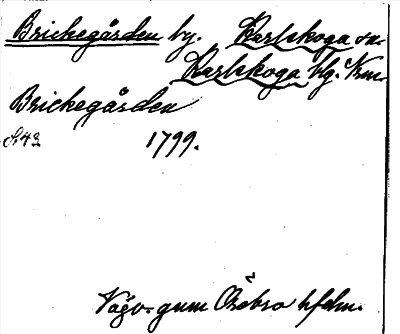 Brickegården by. Karlskoga sn.
Karlskoga blg. Krn.
Brickegården
S. 43 1799.
Vägv. gnm Örebro hfdm.